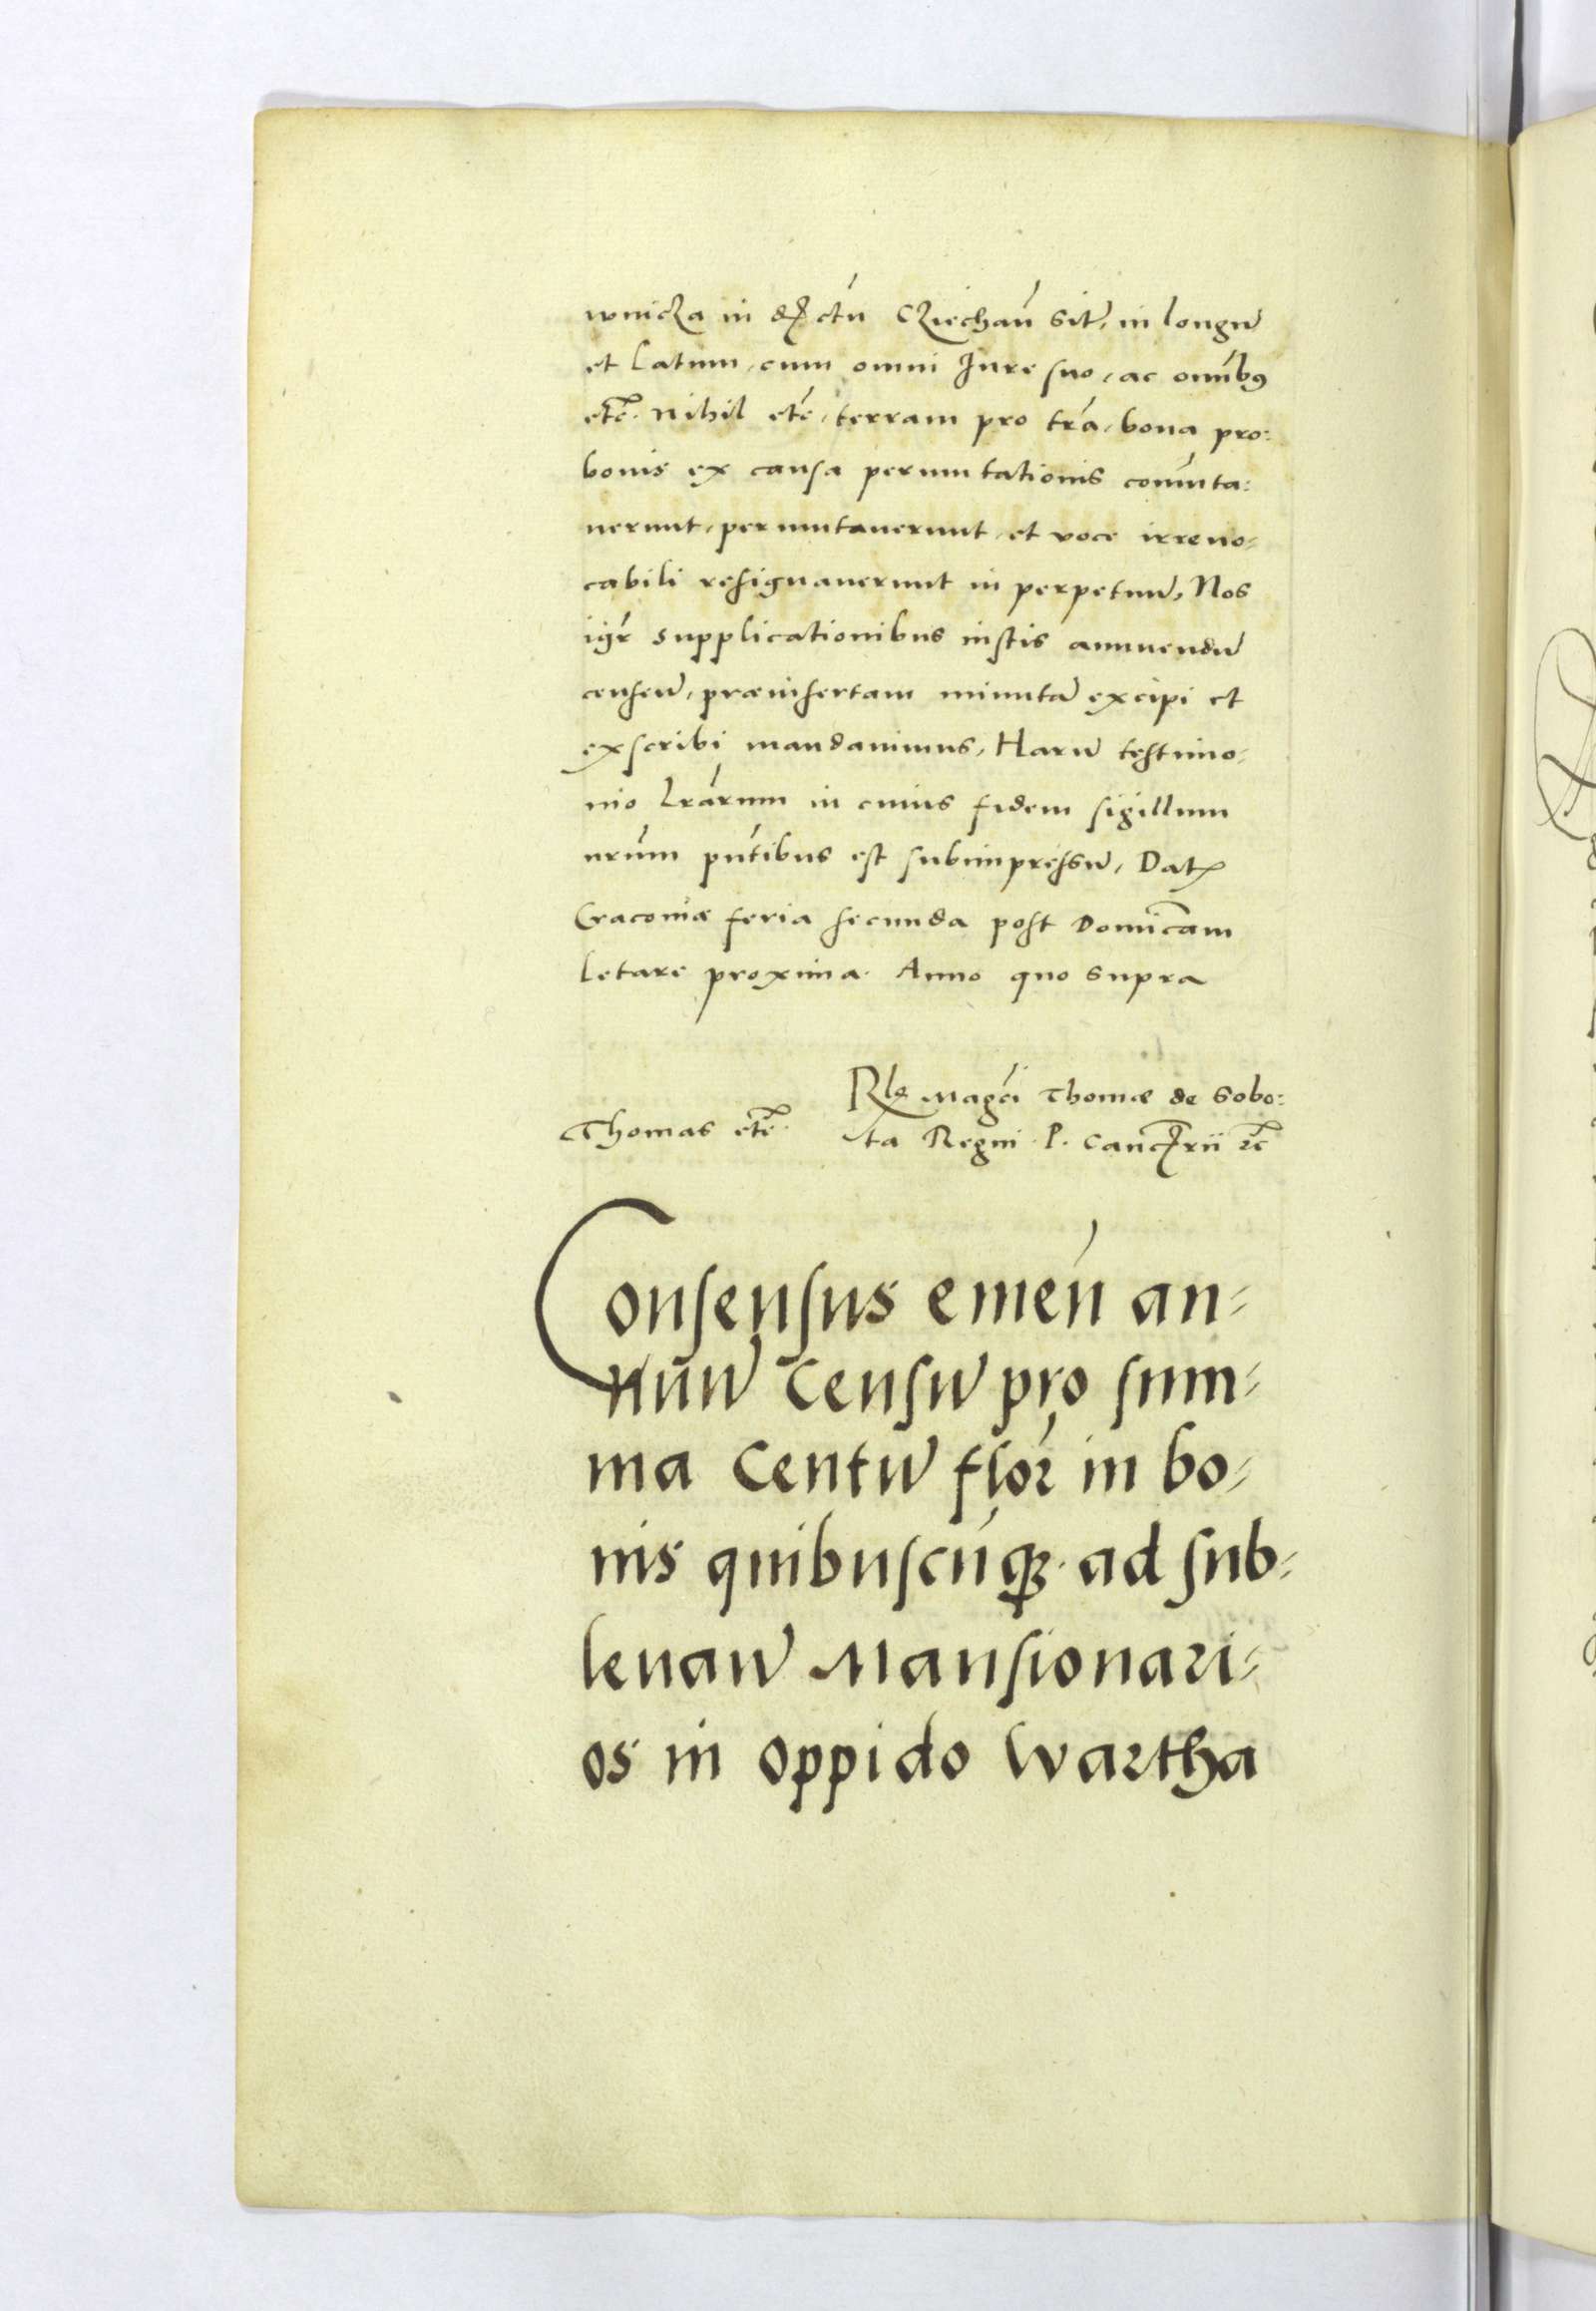 wnicza in dſtctu Cziechan̄ sit̄, in longū
et latum, cum omni Iure suo, ac omībꝰ
etc̄. Nihil etc̄, terram pro trā, bona pro:
bonis ex causa permutationis com̄uta:
uerunt, permutauerunt, et voce irreuo-
cabili resignauerunt in perpetuū, Nos
igr̄ supplicationibus iustis annuendū
censeū, præinsertam minutā excipi et
exscribi mandauimus, Harū testimo-
nio lr̄arum in cuius fidem sigillum
nr̄um pn̄tibus est subimpressū, Datꝭ
Cracouiæ feria secunda post Domīcam
letare proxima. Anno quo supra
Rlo Magci Thomæ de Sobo:
Thomas etc̄. ta Regni P. Cancꝉrii ꝛc̄
Consensus emen̄ an-
nuū censū pro sum-
ma Centū flor̄ in bo-
nis quibuscūqꝫ. ad sub-
leuaū Mansionari-
os in oppido Wartha